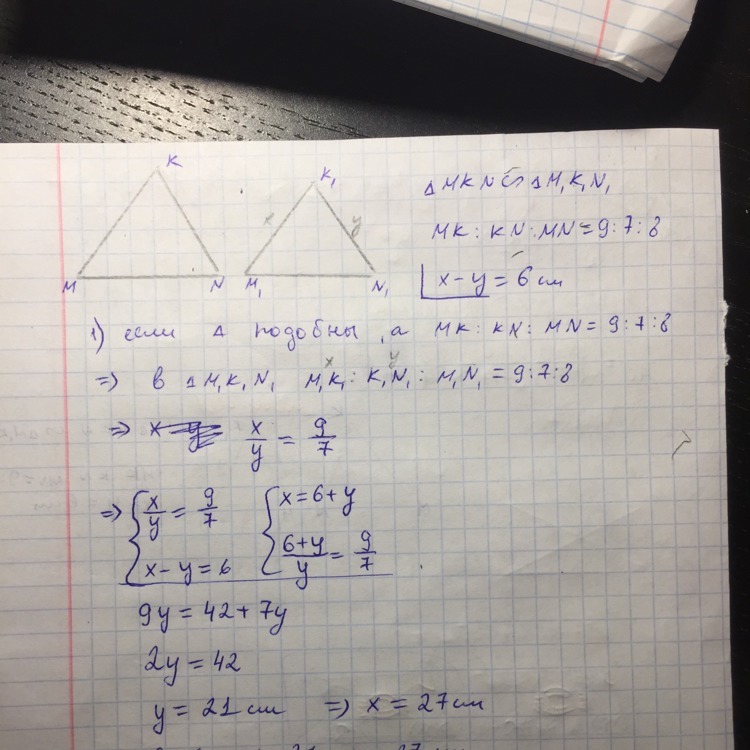 K
K₁
x
y
M
N
M₁
N₁
△MKN ∽ △M₁K₁N₁
MK : KN : MN = 9:7:8
x - y = 6 см
1) если △ подобны, а MK : KN : MN = 9:7:8
x y
=> в △M₁K₁N₁ M₁K₁ : K₁N₁ : M₁N₁ = 9:7:8
=> x/y = 9/7
=> { x/y = 9/7 { x = 6 + y
x - y = 6 (6+y)/y = 9/7
9y = 42 + 7y
2y = 42
y = 21 см => x = 27 см